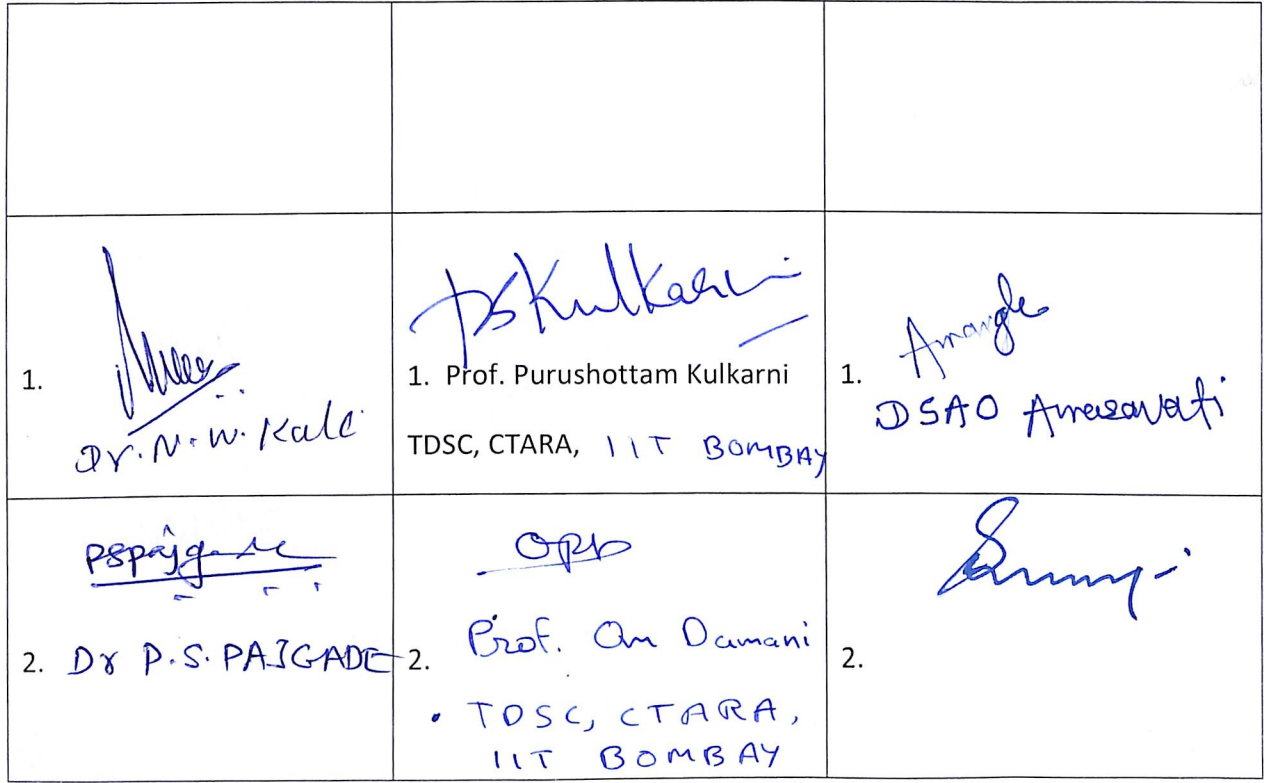 1.
Dr. N. W. Kale
PSKulkarni
1. Prof. Purushottam Kulkarni
TDSC, CTARA, IIT BOMBAY
1.
DSAO Amravati
pspajgade
2. Dr P.S. PAJGADE
2. Prof. Om Damani
• TDSC, CTARA,
IIT BOMBAY
2.